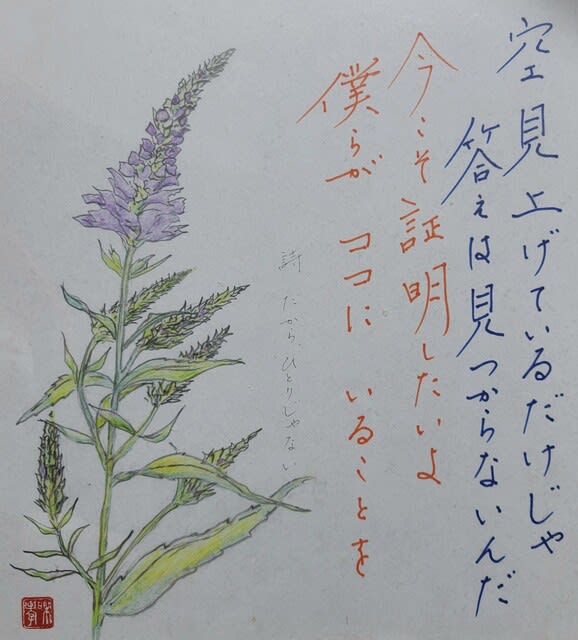 空見上げているだけじゃ
答えは見つからないんだ
今こそ証明したいよ
僕らが ココに いることを
詩 だから、ひとりじゃない